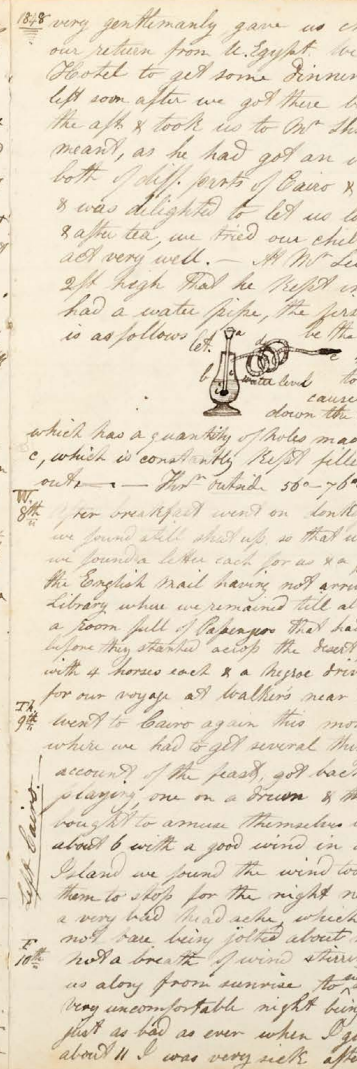 1848 very gentlemanly gave us
our return from U. Egypt We
Hotel to get some dinner
left soon after we got there
the aft & took us to Mr
meant, as he had got an
both of diff. parts of Cairo &
& was delighted to let us
& after tea, we tried our
act very well. — At Mr
2ft high that he kept in
had a water pipe, the
is as follows let. a d be the
c
b water level to
cause
down the
which has a quantity of holes
c, which is constantly kept
out — Thr outside 56° - 76°
W. 8th After breakfast went on
we found still shut up, so that
we found a letter each for us & a
the English mail having not
Library where we remained till
a room full of Passengers that
before they started across the desert
with 4 horses each & a Negroe
for our voyage at Walkers near
Th. 9th went to Cairo again this
where we had to get several
account of the feast, got back
playing, one on a drum & the
Left Cairo.
sought to amuse themselves
about 6 with a good wind in
Island we found the wind too
them to stop for the night
a very bad head ache, which
F 10th not bare being jolted about
not a breath of wind
us along from sunrise to
very uncomfortable night
just as bad as ever when I
about 11 I was very sick